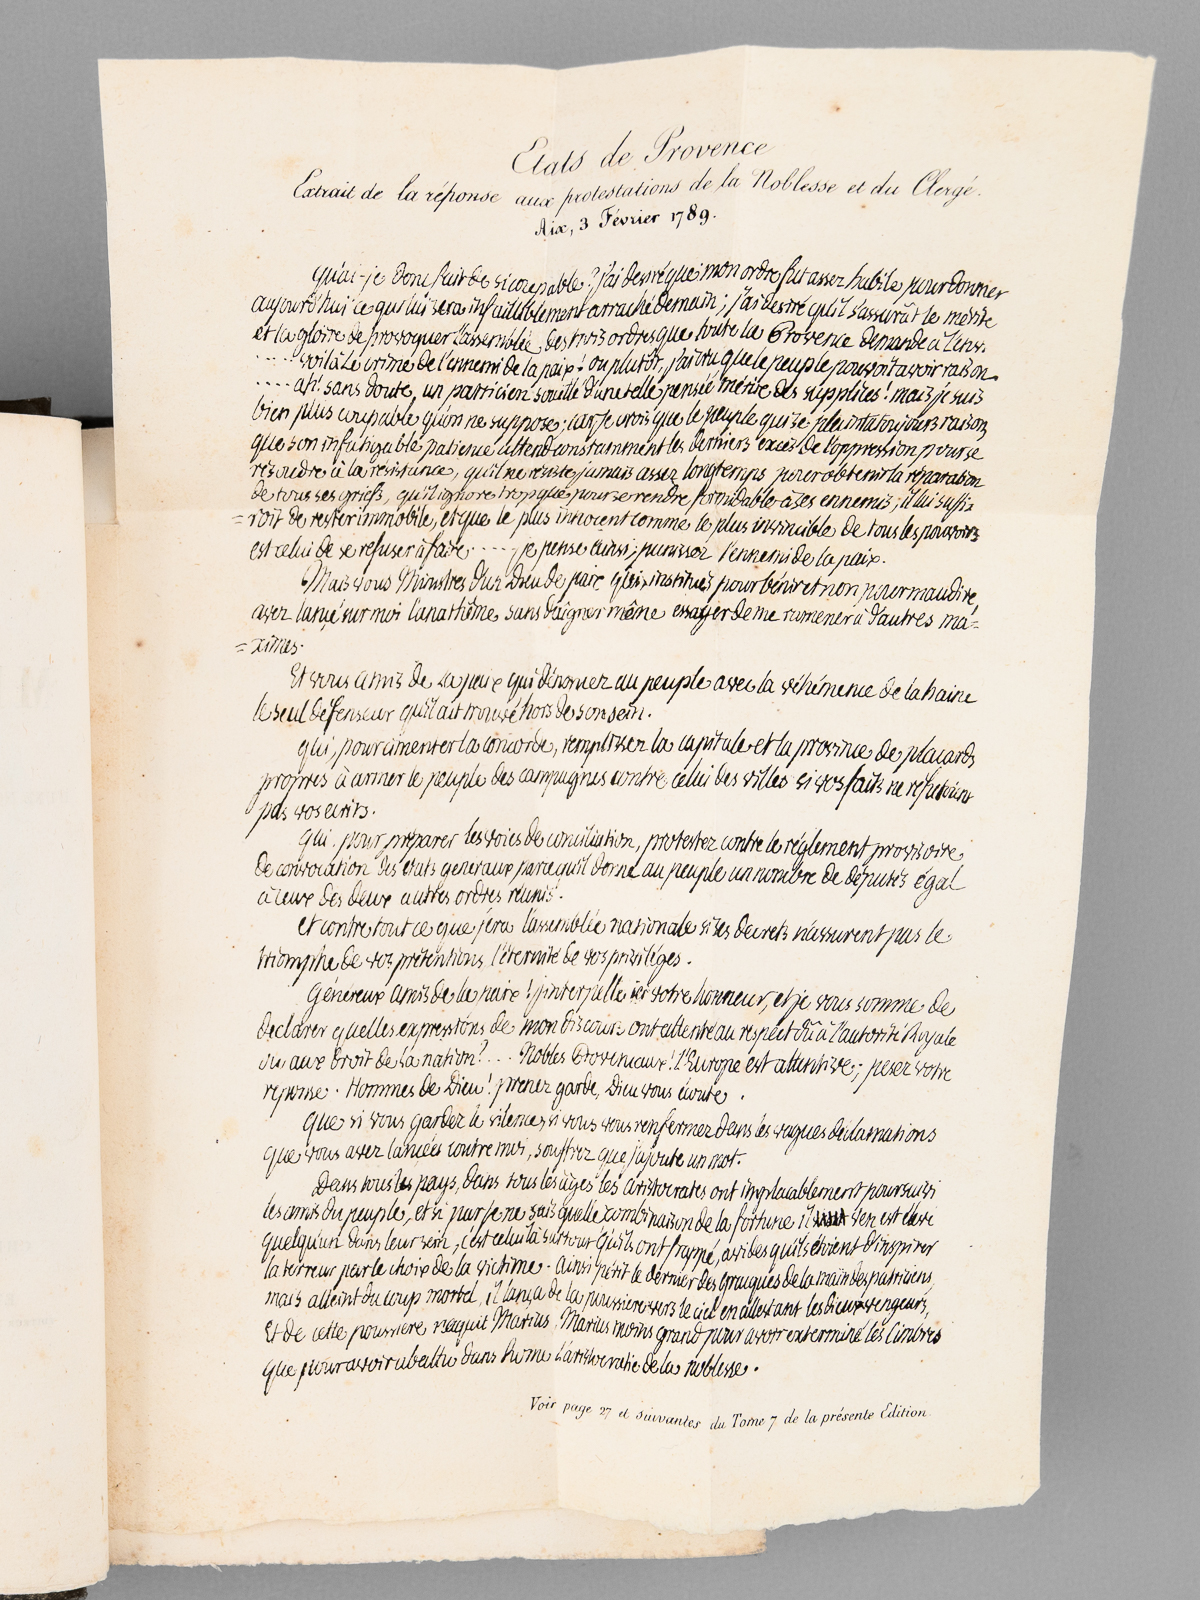 Etats de Provence
Extrait de la réponse aux protestations de la Noblesse et du Clergé.
Aix, 3 Février 1789.
qu'ai-je donc fait de si coupable ? j'ai desiré que mon ordre fut assez habile pour donner
aujourd'hui ce qui lui sera infailliblement arraché demain ; j'ai desiré qu'il s'assurât le mérite
et la gloire de provoquer l'assemblée des trois ordres que toute la Provence demande à l'envi.
.... voilà le crime de l'ennemi de la paix ! ou plutôt, j'ai cru que le peuple pouvoit avoir raison.
.... ah ! sans doute, un patricien souillé d'une telle pensée mérite des supplices ! mais je suis
bien plus coupable qu'on ne suppose ; car je crois que le peuple qui se plaint a toujours raison,
que son infatigable patience attend constamment les derniers excès de l'oppression pour se
résoudre à la résistance, qu'il ne résiste jamais assez longtemps pour obtenir la réparation
de tous ses griefs, qu'il ignore trop que pour se rendre formidable à ses ennemis ; il lui suffi=
=roit de rester immobile, et que le plus innocent comme le plus invincible de tous les pouvoirs
est celui de se refuser à faire .... je pense ainsi ; punissez l'ennemi de la paix.
Mais vous Ministres d'un Dieu de paix qui, institués pour bénir et non pour maudire,
avez lancé sur moi l'anathême sans daigner même essayer de me ramener à d'autres ma=
=ximes.
Et vous amis de la paix qui dénoncez au peuple avec la véhémence de la haine
le seul défenseur qu'il ait trouvé hors de son sein.
qui, pour cimenter la concorde, remplissez la capitale et la province de placards
propres à armer le peuple des campagnes contre celui des villes si vos faits ne refutoient
pas vos ecrits.
qui, pour préparer les voies de conciliation, protestez contre le réglement provisoire
de convocation des etats generaux parce qu'il donne au peuple un nombre de députés égal
à ceux des deux autres ordres réunis.
et contre tout ce que fera l'assemblée nationale si ses decrets n'assurent pas le
triomphe de vos prétentions l'éternité de vos priviléges.
Généreux amis de la paix ! j'interpelle ici votre honneur, et je vous somme de
declarer quelles expressions de mon discours ont attenté au respect dû à l'autorité Royale
ou aux droit de la nation ? ... Nobles Provencaux ! l'Europe est attentive ; pesez votre
reponse . Hommes de Dieu ! prenez garde, Dieu vous écoute .
que si vous gardez le silence, si vous vous renfermez dans les vagues déclamations
que vous avez lancées contre moi, souffrez que j'ajoute un mot.
Dans tous les pays, dans tous les âges les aristocrates ont implacablement poursuivi
les amis du peuple, et si par je ne sais quelle combinaison de la fortune il s'en est elevé
quelqu'un dans leur sein, c'est celui là surtout qu'ils ont frappé, avides qu'ils étoient d'inspirer
la terreur par le choix de la victime . ainsi périt le dernier des Gracques de la main des patriciens,
mais atteint du coup mortel, il lança de la poussiere vers le ciel en attestant les dieux vengeurs,
Et de cette poussiere naquit Marius. Marius moins grand pour avoir exterminé les Cimbres
que pour avoir abattu dans Rome l'aristocratie de la noblesse .
Voir page 27 et suivantes du Tome 7 de la présente Edition